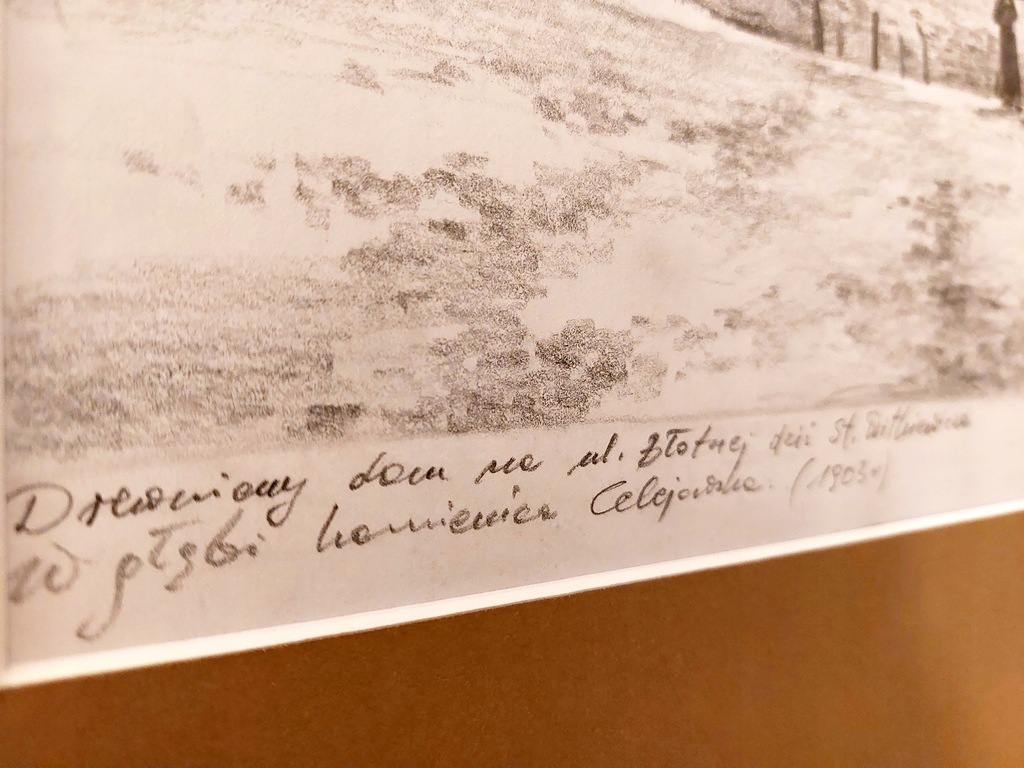 Drewniany dom na ul. Złotnej dziś St. Witkiewicza
W głębi kamienica Celejowska. (1903r)